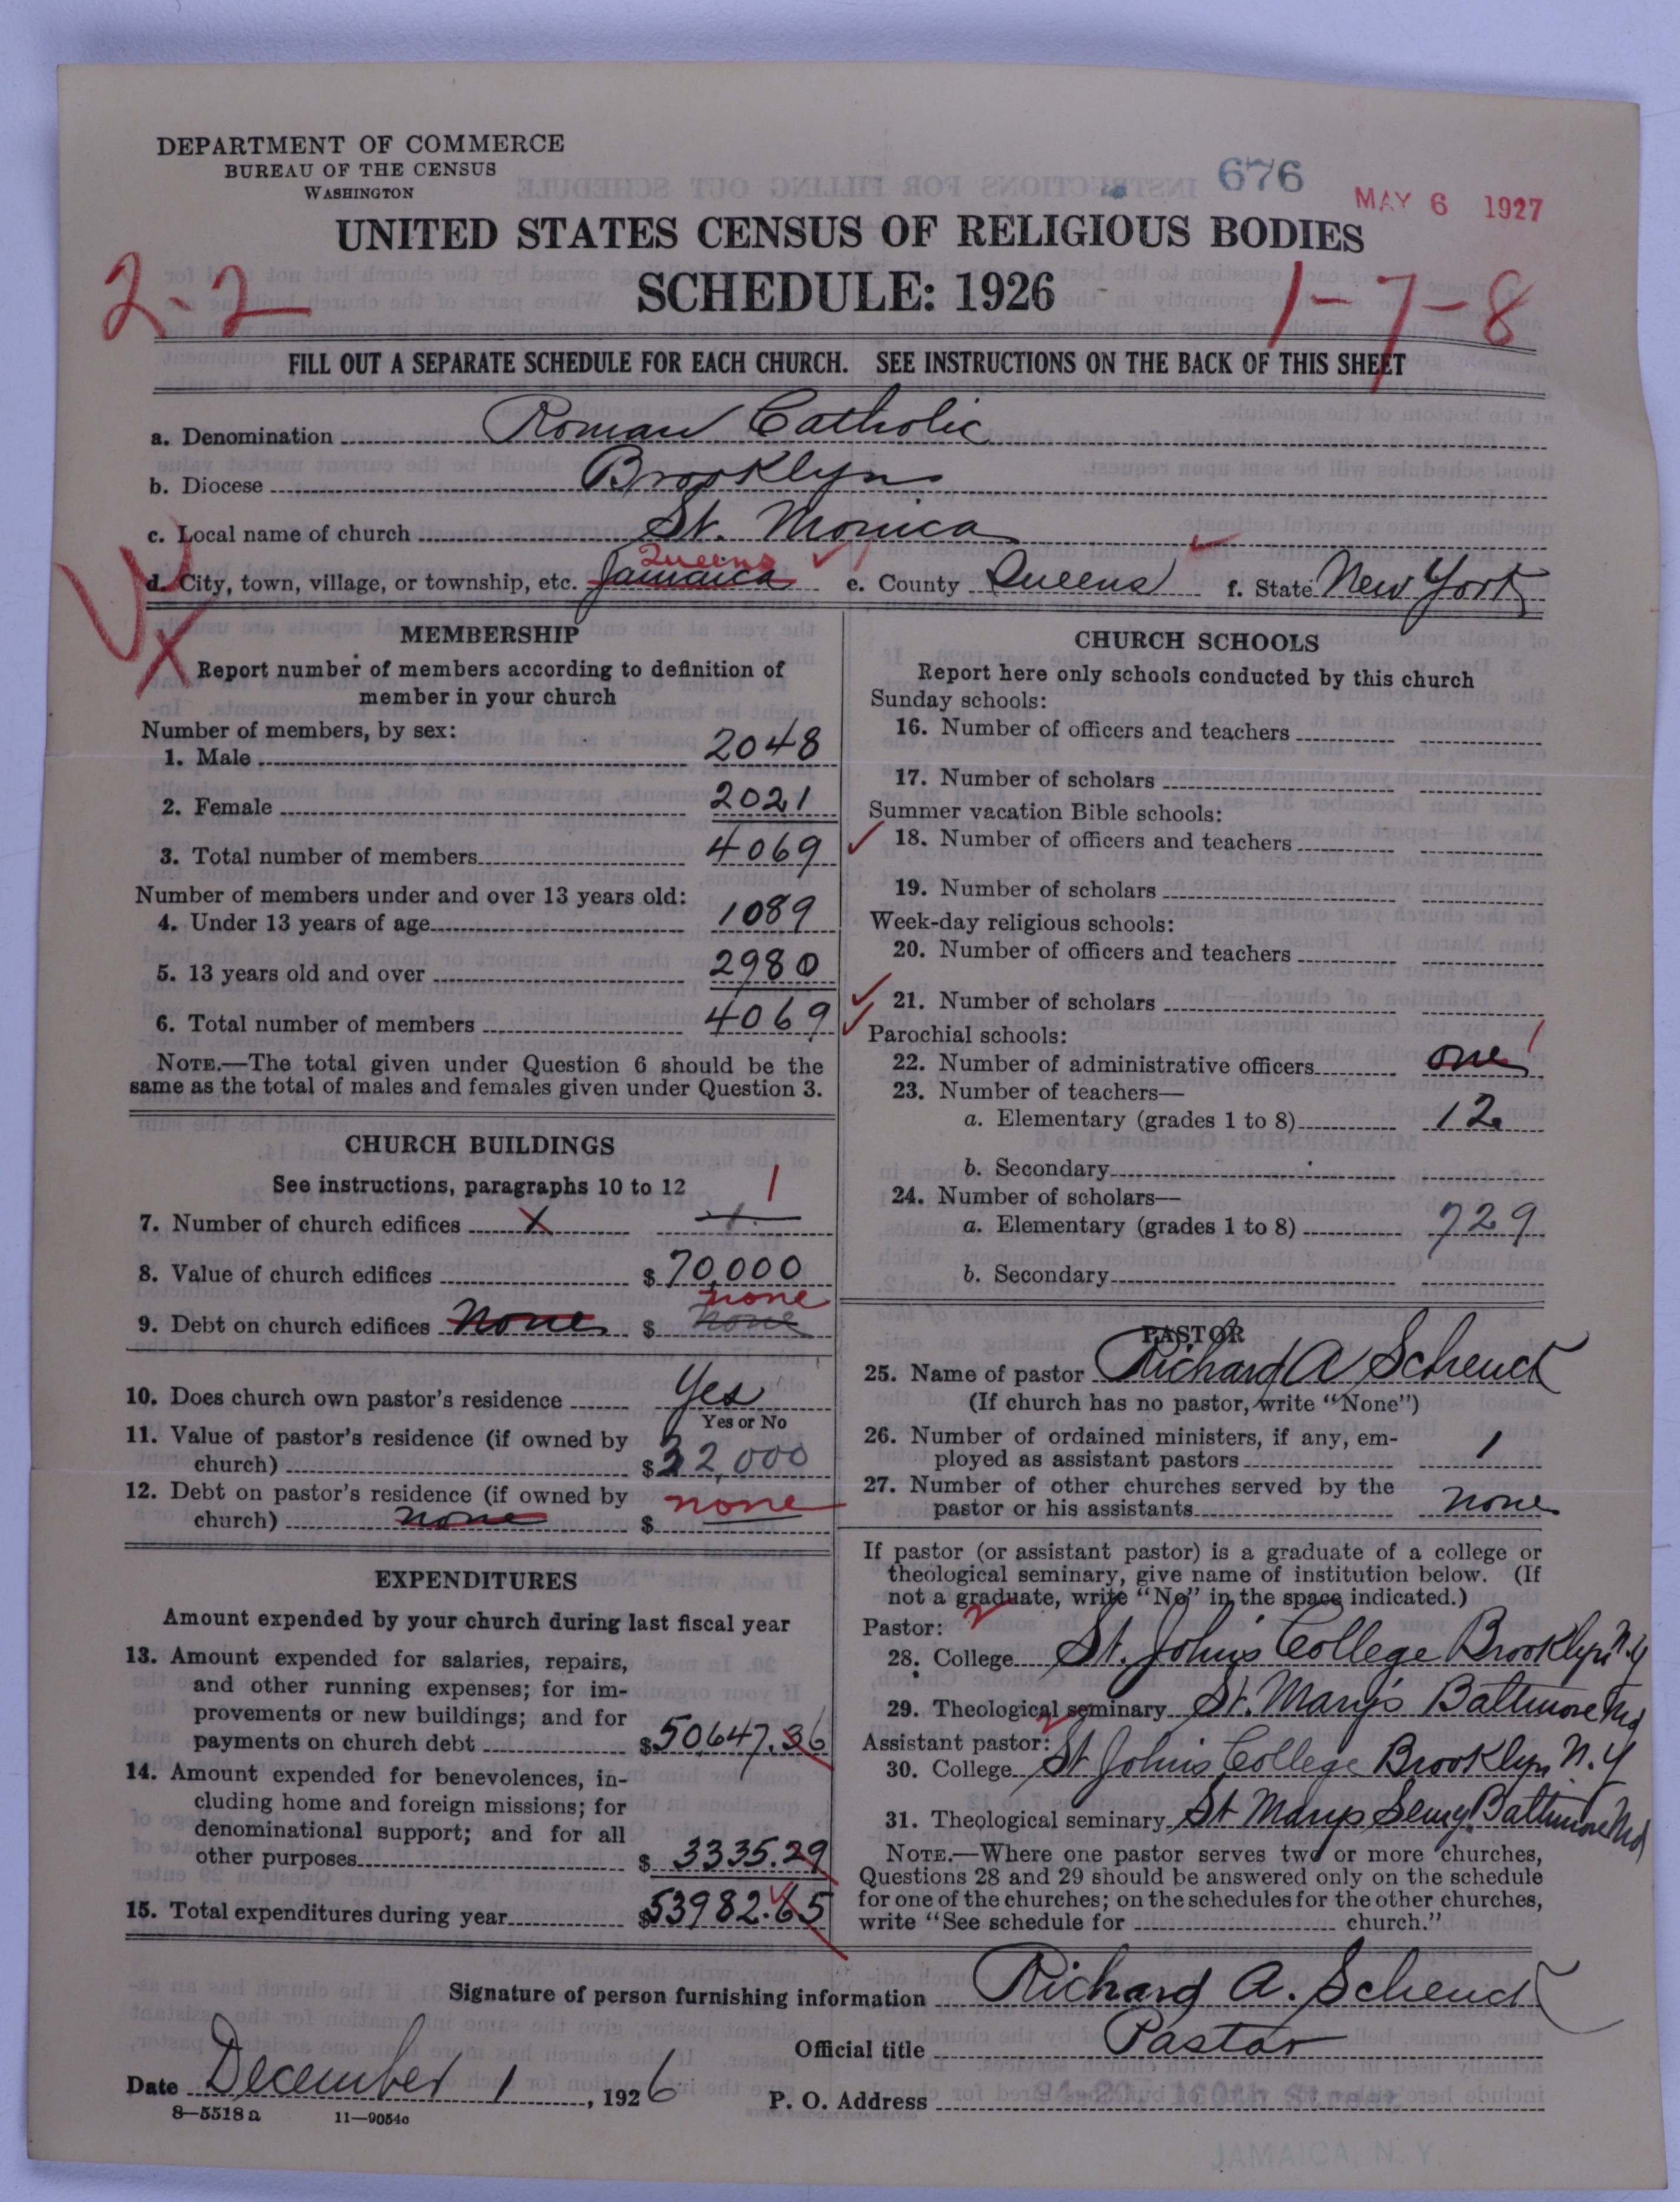 DEPARTMENT OF COMMERCE
BUREAU OF THE CENSUS
WASHINGTON
676
MAY 6 1927
UNITED STATES CENSUS OF RELIGIOUS BODIES
SCHEDULE: 1926
2-2
1-7-8
FILL OUT A SEPARATE SCHEDULE FOR EACH CHURCH. SEE INSTRUCTIONS ON THE BACK OF THIS SHEET
a. Denomination Roman Catholic
b. Diocese Brooklyn
c. Local name of church St. Monica
Queens
d. City, town, village, or township, etc. Jamaica e. County Queens f. State New York
MEMBERSHIP
Report number of members according to definition of
member in your church
Number of members, by sex:
1. Male 2048
2. Female 2021
3. Total number of members 4069
Number of members under and over 13 years old:
4. Under 13 years of age 1089
5. 13 years old and over 2980
6. Total number of members 4069
NOTE.—The total given under Question 6 should be the
same as the total of males and females given under Question 3.
CHURCH BUILDINGS
See instructions, paragraphs 10 to 12 1
7. Number of church edifices X 1
8. Value of church edifices $ 70,000
none
9. Debt on church edifices None $ None
10. Does church own pastor's residence Yes
Yes or No
11. Value of pastor's residence (if owned by
church) $ 32,000
12. Debt on pastor's residence (if owned by
church) none $ none
EXPENDITURES
Amount expended by your church during last fiscal year
13. Amount expended for salaries, repairs,
and other running expenses; for im-
provements or new buildings; and for
payments on church debt $ 50,647.36
14. Amount expended for benevolences, in-
cluding home and foreign missions; for
denominational support; and for all
other purposes $ 3335.29
15. Total expenditures during year $ 53982.65
CHURCH SCHOOLS
Report here only schools conducted by this church
Sunday schools:
16. Number of officers and teachers
17. Number of scholars
Summer vacation Bible schools:
18. Number of officers and teachers
19. Number of scholars
Week-day religious schools:
20. Number of officers and teachers
21. Number of scholars
Parochial schools:
22. Number of administrative officers one 1
23. Number of teachers—
a. Elementary (grades 1 to 8) 12
b. Secondary
24. Number of scholars—
a. Elementary (grades 1 to 8) 729
b. Secondary
PASTOR
25. Name of pastor Richard A Schenck
(If church has no pastor, write "None")
26. Number of ordained ministers, if any, em-
ployed as assistant pastors 1
27. Number of other churches served by the
pastor or his assistants none
If pastor (or assistant pastor) is a graduate of a college or
theological seminary, give name of institution below. (If
not a graduate, write "No" in the space indicated.)
Pastor: 2
28. College St. John's College Brooklyn N.Y
29. Theological seminary St. Mary's Baltimore Md
Assistant pastor: 2
30. College St John's College Brooklyn N.Y
31. Theological seminary St Marys Semy. Baltimore Md
NOTE.—Where one pastor serves two or more churches,
Questions 28 and 29 should be answered only on the schedule
for one of the churches; on the schedules for the other churches,
write "See schedule for church."
Signature of person furnishing information Richard A. Schenck
Official title Pastor
Date December 1, 1926
P. O. Address 94-20, 160th Street
JAMAICA, N. Y.
8—5518 a 11—9054c